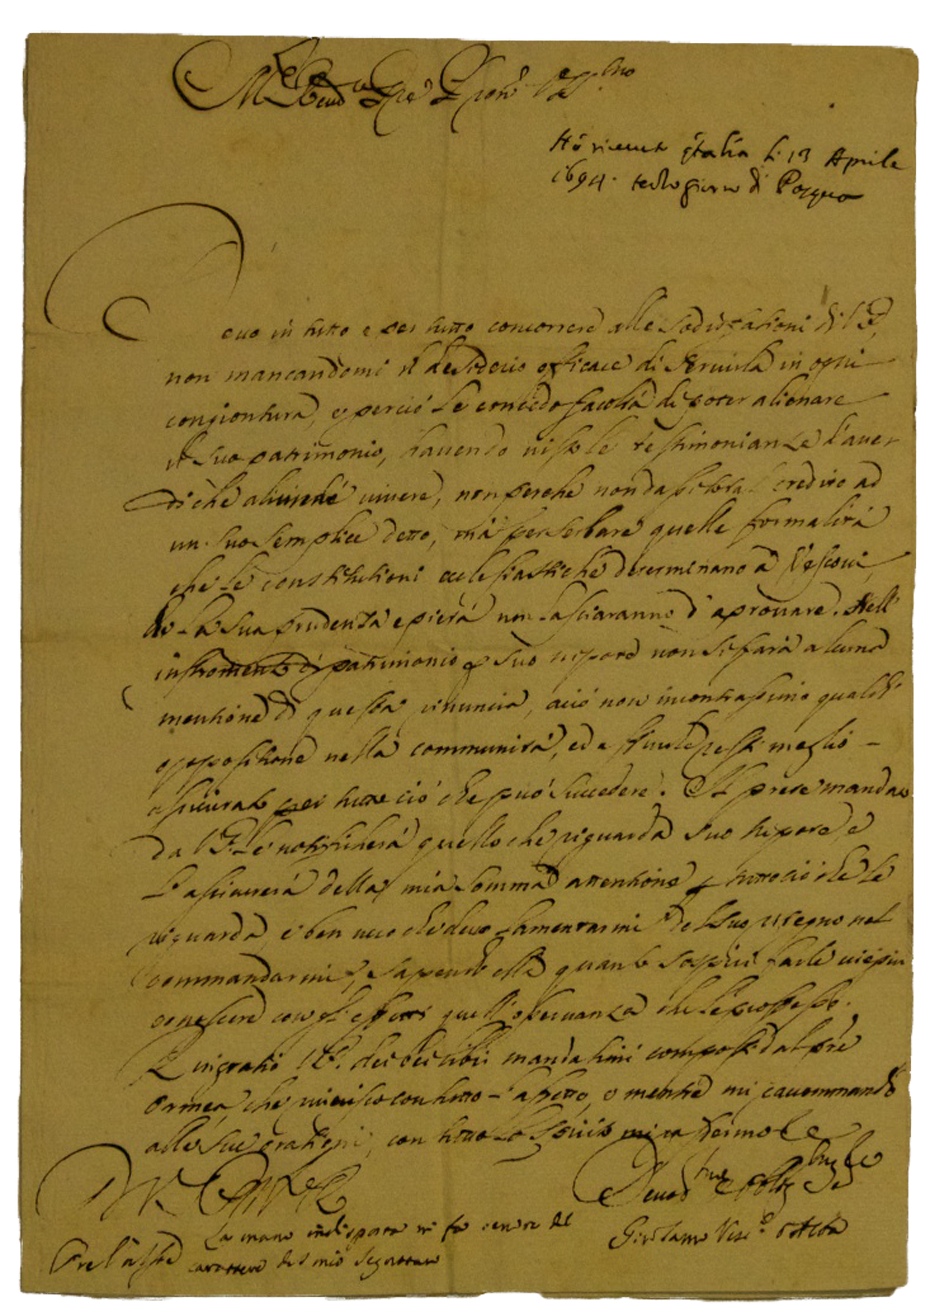 M.to Rend.o
Hò ricevuta q.ta lra li 13 Aprile
1694. secondo giorno di Pasqua
Devo in tutto e per tutto concorrere alle sodisfationi di V.P.
non mancandomi il desiderio efficace di servirla in ogni
congiontura, e perciò le concedo facoltà di poter alienare
il suo patrimonio, havendo visto le testimonianze d'aver
di che vivere, non perche non dassi fede credito ad
un suo semplice detto, mà per serbare quelle formalità
che le constitutioni ecclesiastiche determinano à Vescovi,
la sua prudenza e pietà non lasciaranno d'aprovare. Nell'
instromento di patrimonio suo nipote non si farà alcuna
mentione di questa rinuncia, acciò non incontrassimo qualche
oppositione nella communità, ed resti meglio
assicurato per tutto ciò che può succedere. Il prete mandato
da V.P. le notificherà quello che riguarda suo nipote, e
l'assicurerà della mia somma attentione tutto ciò che le
riguarda, è ben vero che devo lamentarmi del suo ritegno nel
commandarmi, sapendo ella quanto sospiri farle
conoscere con gl'effetti quell'osservanza che le professo.
Ringratio V.P. dei libri mandatimi composti dal Pre
Ormea, che con tutto l'affetto, e mentre mi raccommando
alle sue orationi, con tutto lo spirito mi raffermo
Di V.P.
Devot.mo et Oblig.mo
La mano indisposta mi fa servire del
carattere del mio Segretaro
Girolamo Vesc.o d'Alba